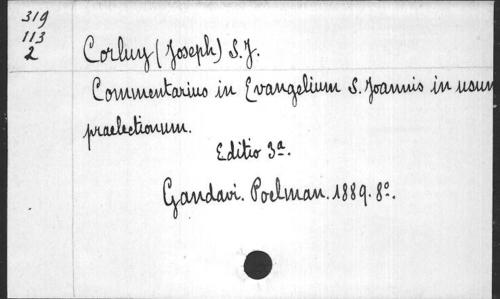 319
113
2
Corluy (Joseph) S.J.
Commentarius in Evangelium S. Joannis in usum
praelectionum.
Editio 3ª.
Gandavi. Poelman. 1889. 8º.